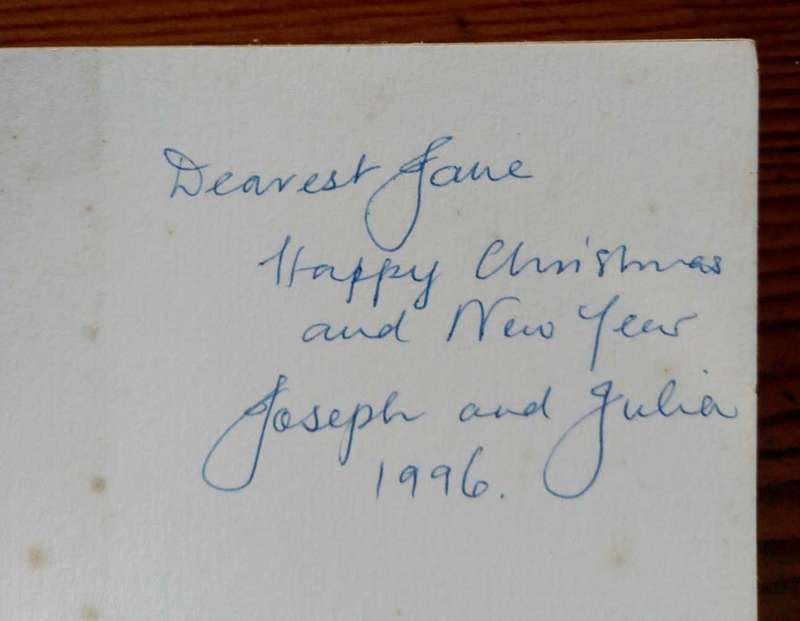 Dearest Jane
Happy Christmas
and New Year
Joseph and Julia
1996.